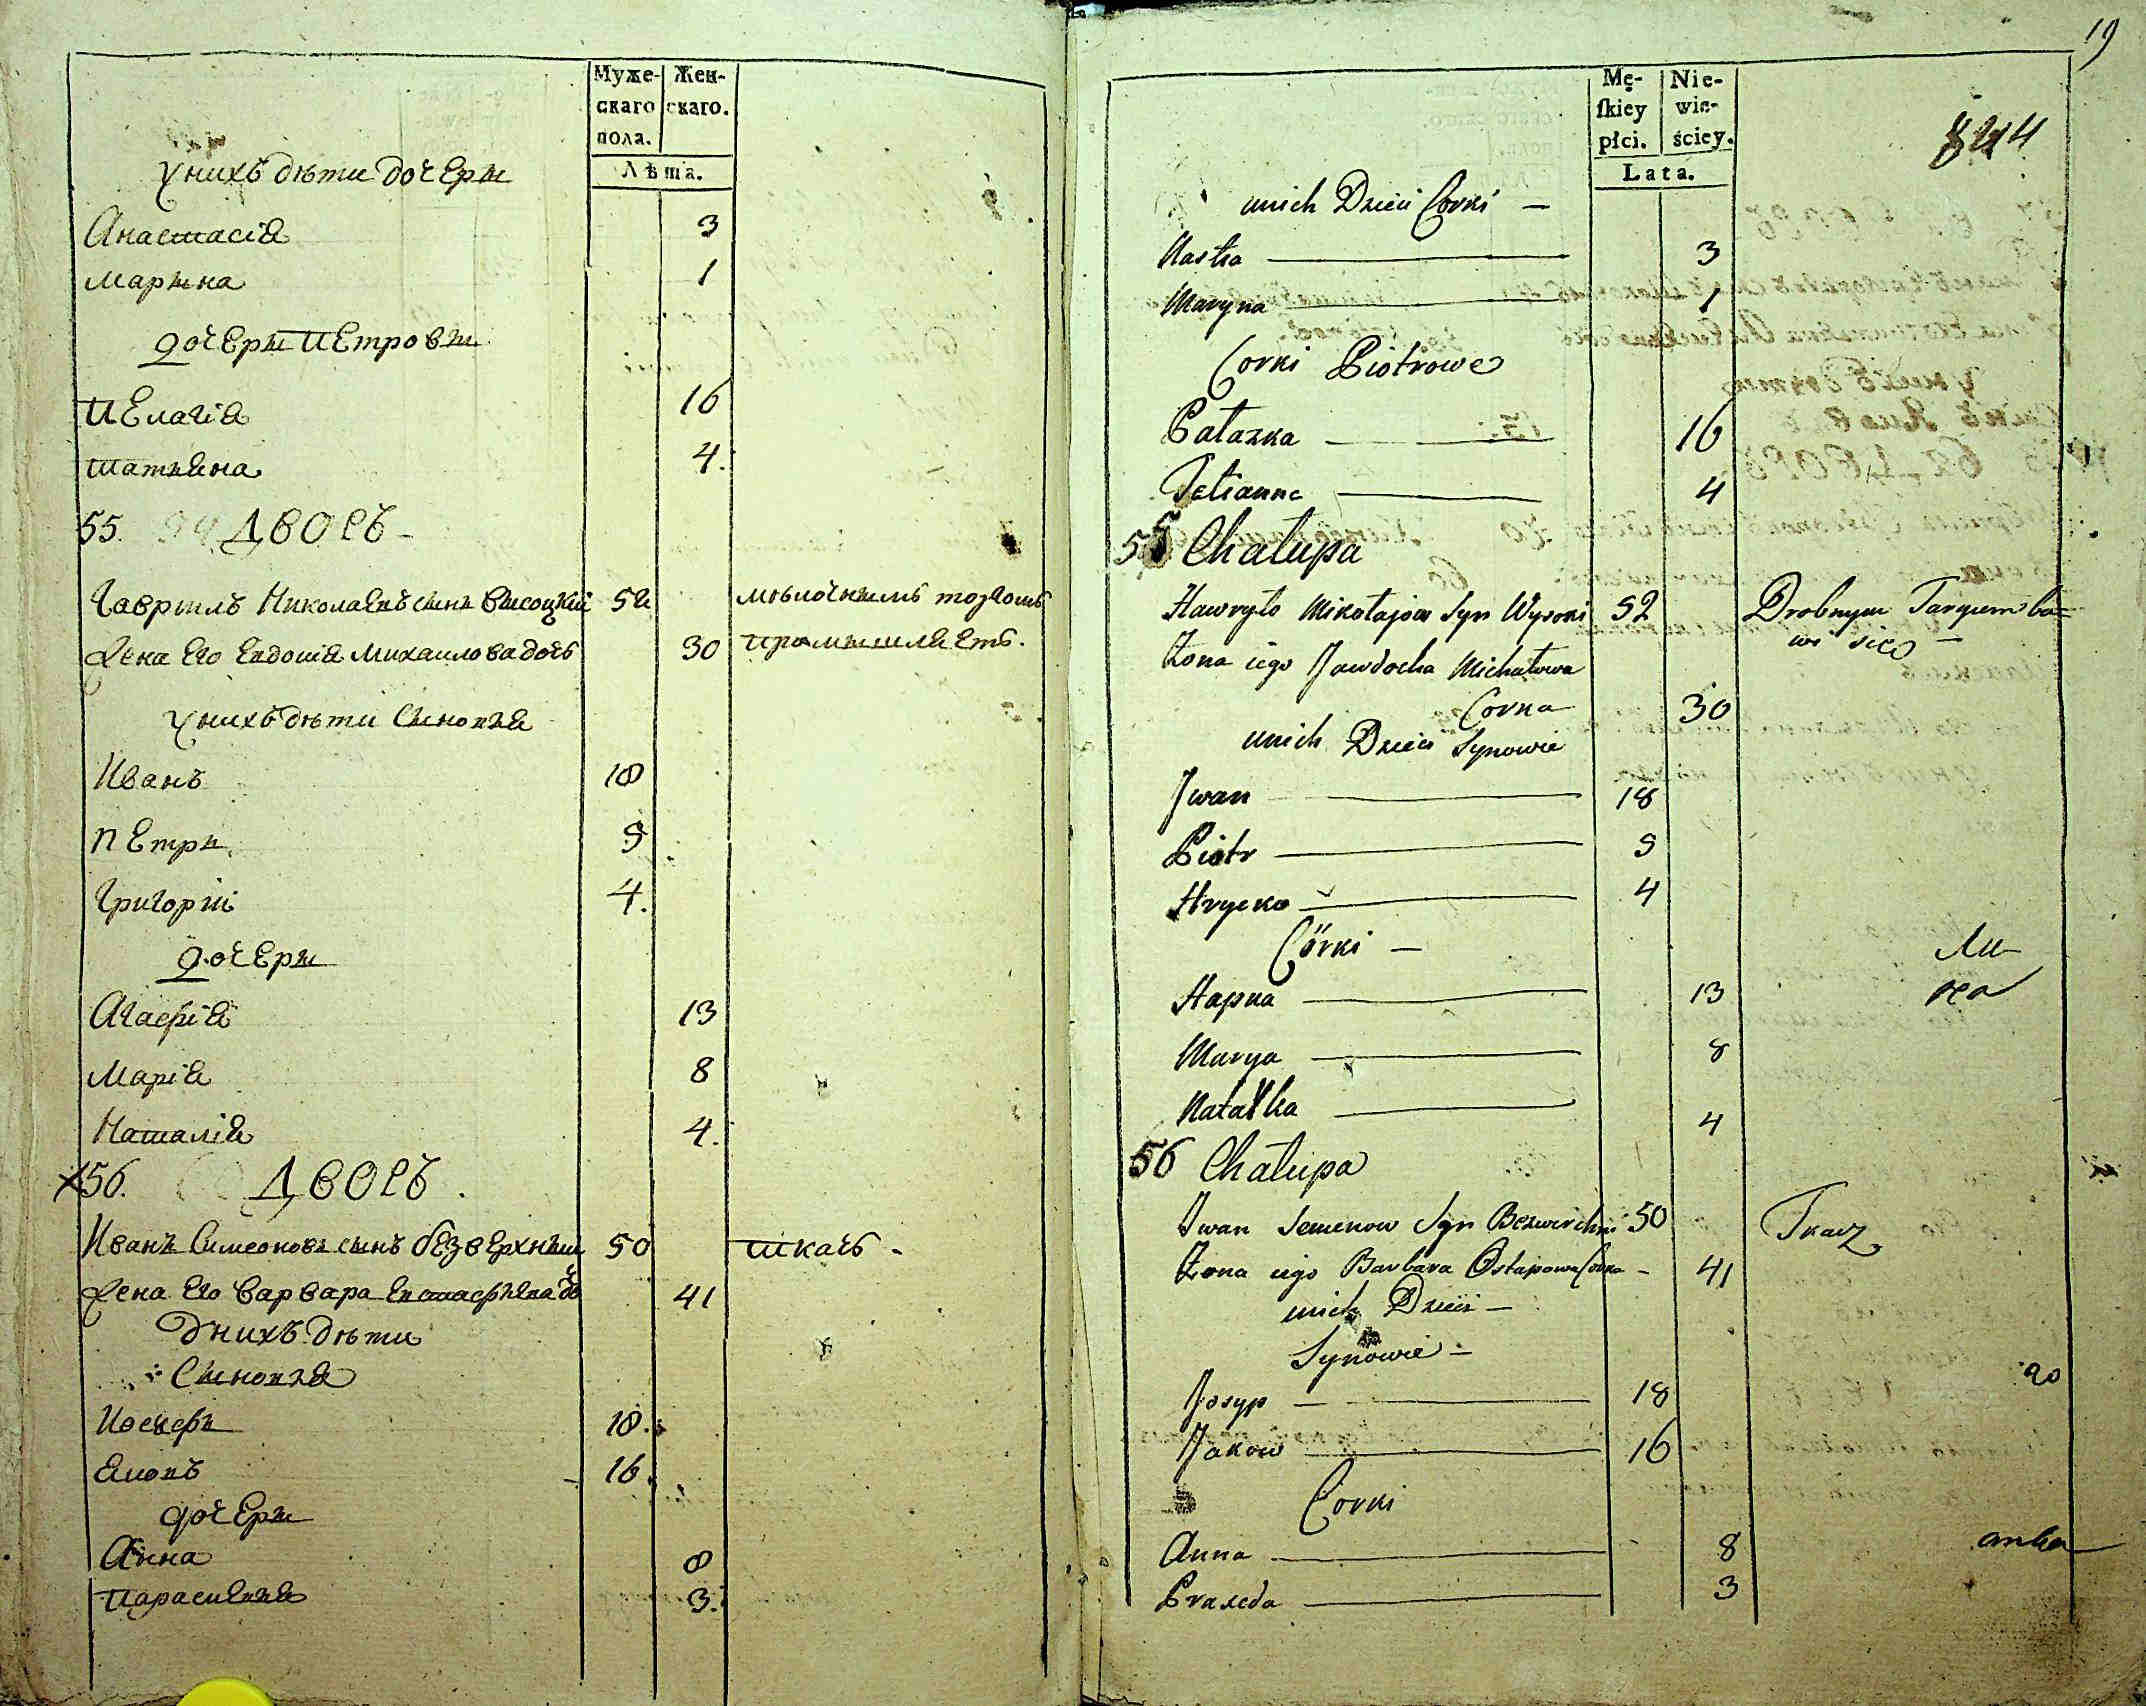 Муже-
скаго
пола.
Жен-
скаго.
Лѣта.
у нихъ дѣти дочеры
Анастасія 3
Марына 1
дочеры Петровы
Пелагія 16
Татыяна 4.
55. дворъ
Гаврылъ Николаевъ сынъ Высоцкій 52 мѣлочнымъ торгомъ
жена его Евдокія Михаилова дочь 30 промышляетъ.
у нихъ дѣти сыновья
Иванъ 18
Петръ 9
Григорій 4.
дочеры
Агафія 13
Марія 8
Наталія 4.
56. дворъ.
Иванъ Симеоновъ сынъ Безверхный 50 ткачь
жена его Варвара Евстафьева до 41
у нихъ дѣти
сыновья
Иосифъ 18.
Яковъ 16.
дочеры
Анна 8
Параскевья 3.
19
Mę-
ſkiey
płci.
Nie-
wie-
ściey.
Lata.
844
unich Dzieci Corki —
Nastka 3
Maryna 1
Corki Piotrowe
Pałazka 16
Tetianna 4
55 Chałupa
Hawryło Mikołajow Syn Wysocki 52 Drobnym Targiem ba=
Zona iego Jawdocha Michałowa wi sieę —
Corka 30
unich Dzieci Synowie
Jwan 18
Piotr 9
Hrycko 4
Córki —
Hapka 13
Marya 8
Natałka 4
56 Chałupa
Jwan Semenow Syn Bezwerchni 50 Tkacz
Zona iego Barbara Ostapowa Corka — 41
unich Dzieci —
Synowie —
Josyp 18
Jakow 16
Corki
Anna 8
Praxeda 3